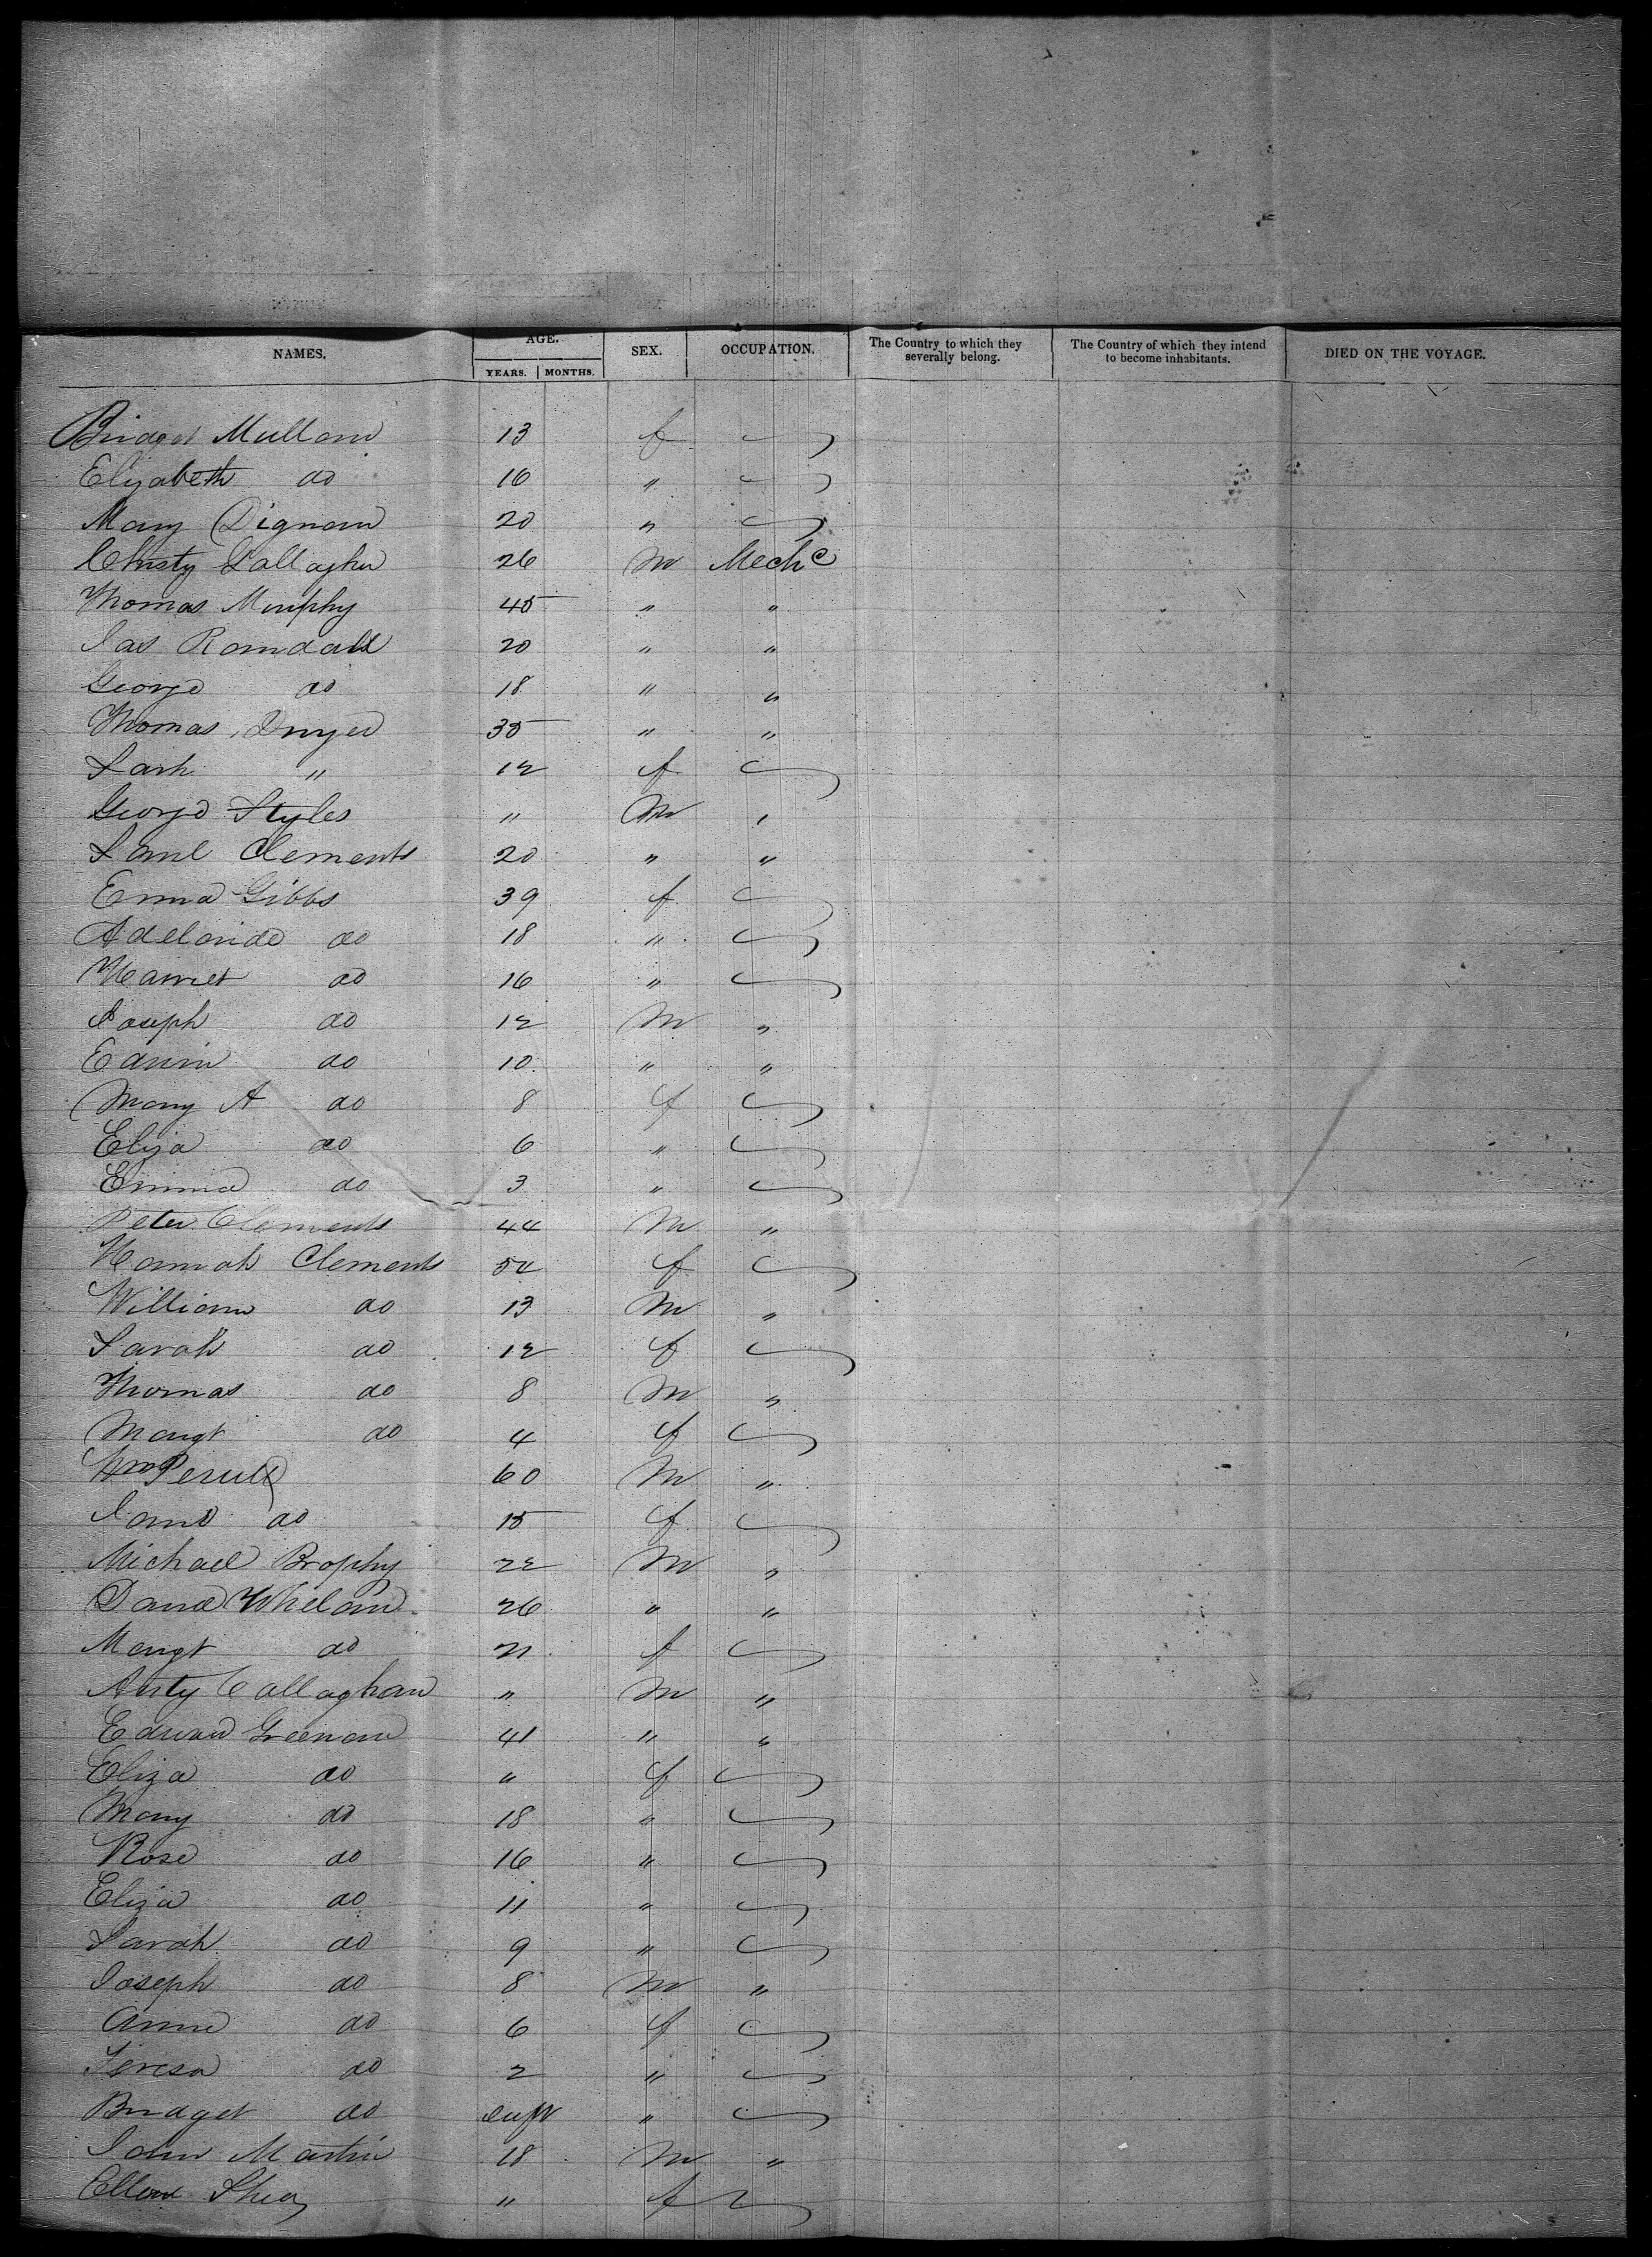 NAMES. AGE. SEX. OCCUPATION. The Country to which they severally belong. The Country of which they intend to become inhabitants. DIED ON THE VOYAGE.
YEARS. MONTHS.
Bridget Mullan 13 f
Elizabeth do 16 "
Mary Dignam 20 "
Christy Gallagher 26 M Mechc
Thomas Murphy 45 " "
Jas Randall 20 " "
George do 18 " "
Thomas Dwyer 35 " "
Sarh " 12 f
George Styles " M "
Saml Clements 20 " "
Emma Gibbs 39 f
Adelaide do 18 "
Harriet do 16 "
Joseph do 12 M "
Edwin do 10 " "
Mary A do 8 f
Eliza do 6 "
Emma do 3 "
Peter Clements 44 M "
Hannah Clements f
William do 13 M "
Sarah do 12 f
Thomas do 8 M "
Margt do 4 f
Wm 60 M "
Jane do 15 f
Michael Brophy 22 M "
David Whelan 26 " "
Margt do 21 f
Anty Callaghan " M "
Edward Greenan 41 " "
Eliza do " f
Mary do 18 "
Rose do 16 "
Eliza do 11 "
Sarah do 9 "
Joseph do 8 M "
Anne do 6 f
Teresa do 2 "
Bridget do "
John Martin 18 M "
Ellen Shea " f